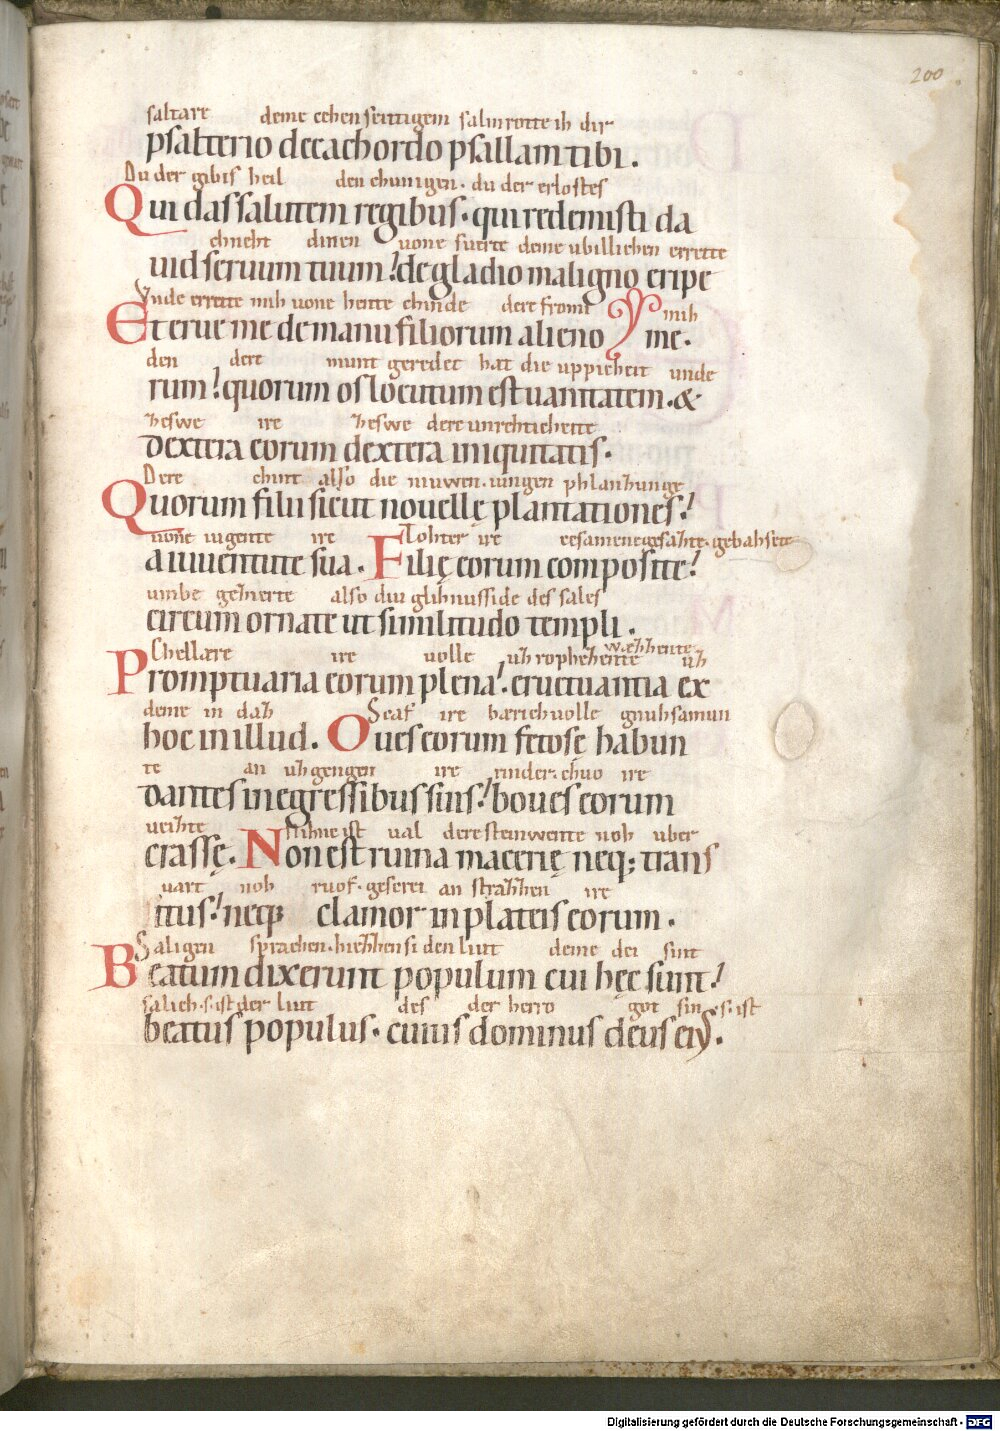 200
saltare deme cehenseitigem salmrotte ih dir
psalterio decachordo psallam tibi.
Du der gibis heil den chunigen. du der erlostes
Qui das salutem regibus. qui redemisti da
chneht dinen uone suerte deme ubillichen errette
uid seruum tuum? de gladio maligno eripe
Vnde errette mih uone hente chinde dere fromi mih
Et erue me de manu filiorum alieno me.
den dere munt geredet hat die uppicheit unde
rum? quorum os locutum est uanitatem. &
zeswe ire zeswe dere unrehticheite
dextera eorum dextera iniquitatis.
Dere chint also die niuwen. iungen phlanzunge
Quorum filii sicut nouellę plantationes?
uone iugente ire Tohter ire cesamenegesazte. gebahsete
a iuuentute sua. Filię eorum composite?
umbe gezierte also diu glihnusside des sales
circum ornate ut similitudo templi.
Chellære ire uolle uzrophezente wæhhente uz
Promptuaria eorum plena?. eructuantia ex
deme in daz Scaf ire bærich uolle gnuhsamun
hoc in illud. Oues eorum fetosę habun
te an uzgengen ire rinder. chuo ire
dantes in egressibus suis? boues eorum
ueizte Nstihne ist ual dere steinwente noh uber
crassę. Non est ruina macerię neq; trans
uart noh ruof. geserei an strazzen ire
itus? neq; clamor in plateis eorum.
Saligen sprachen. hiezzen si den liut deme dei sint
Beatum dixerunt populum cui hęc sunt?
salich. s. ist der liut des der herro got sin. s. ist
beatus populus. cuius dominus deus eius.
Digitalisierung gefördert durch die Deutsche Forschungsgemeinschaft - DFG